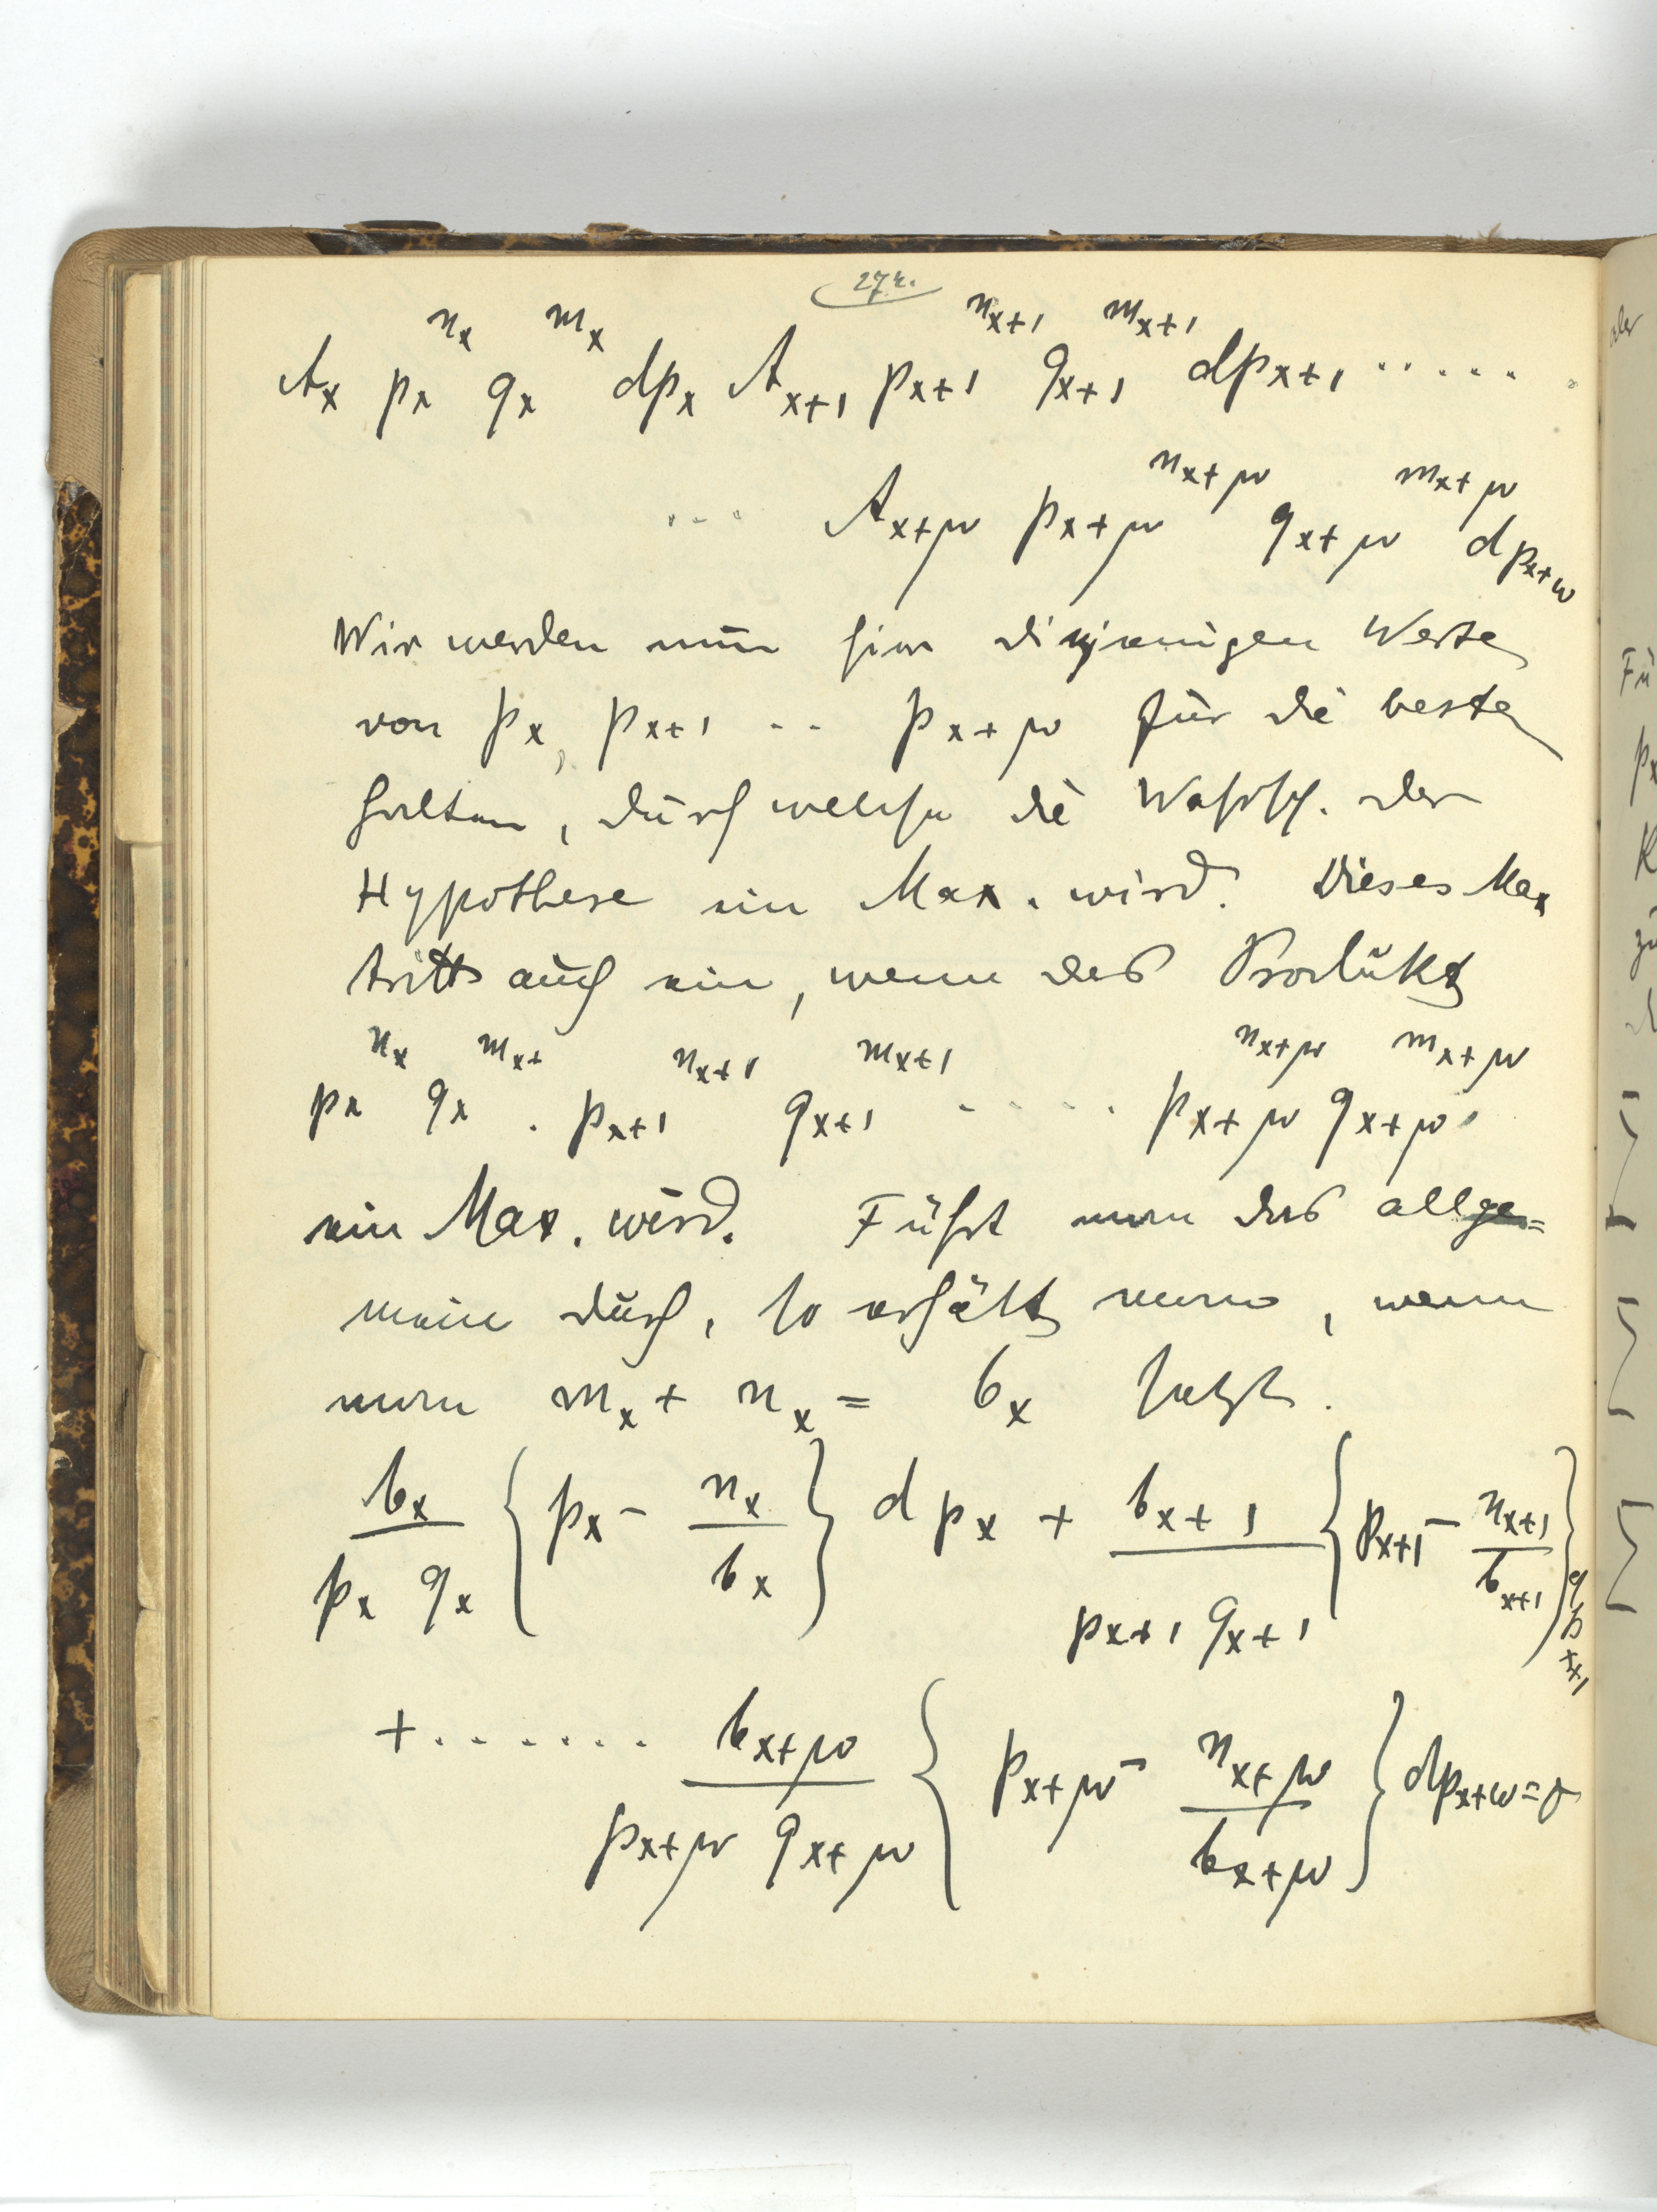 274.
A_x p_x^{n_x} q_x^{m_x} dp_x A_{x+1} p_{x+1}^{n_{x+1}} q_{x+1}^{m_{x+1}} dp_{x+1} .....
... A_{x+w} p_{x+w}^{n_{x+w}} q_{x+w}^{m_{x+w}} dp_{x+w}
Wir werden nun hier diejenigen Werte
von p_x, p_{x+1} .. p_{x+w} für die beste
halten, durch welche die Wahrsch. der
Hypothese ein Max. wird. Dieses Max
tritt auch ein, wenn das Produkt
p_x^{n_x} q_x^{m_x+} . p_{x+1}^{n_{x+1}} q_{x+1}^{m_{x+1}} ..... p_{x+w}^{n_{x+w}} q_{x+w}^{m_{x+w}}
ein Max. wird. Führt man das allge=
mein durch, so erhält man, wenn
man m_x + n_x = b_x setzt.
\frac{b_x}{p_x q_x} { p_x - \frac{n_x}{b_x} } dp_x + \frac{b_{x+1}}{p_{x+1} q_{x+1}} { p_{x+1} - \frac{n_{x+1}}{b_{x+1}} } dp_{x+1}
+ ....... \frac{b_{x+w}}{p_{x+w} q_{x+w}} { p_{x+w} - \frac{n_{x+w}}{b_{x+w}} } dp_{x+w} = 0